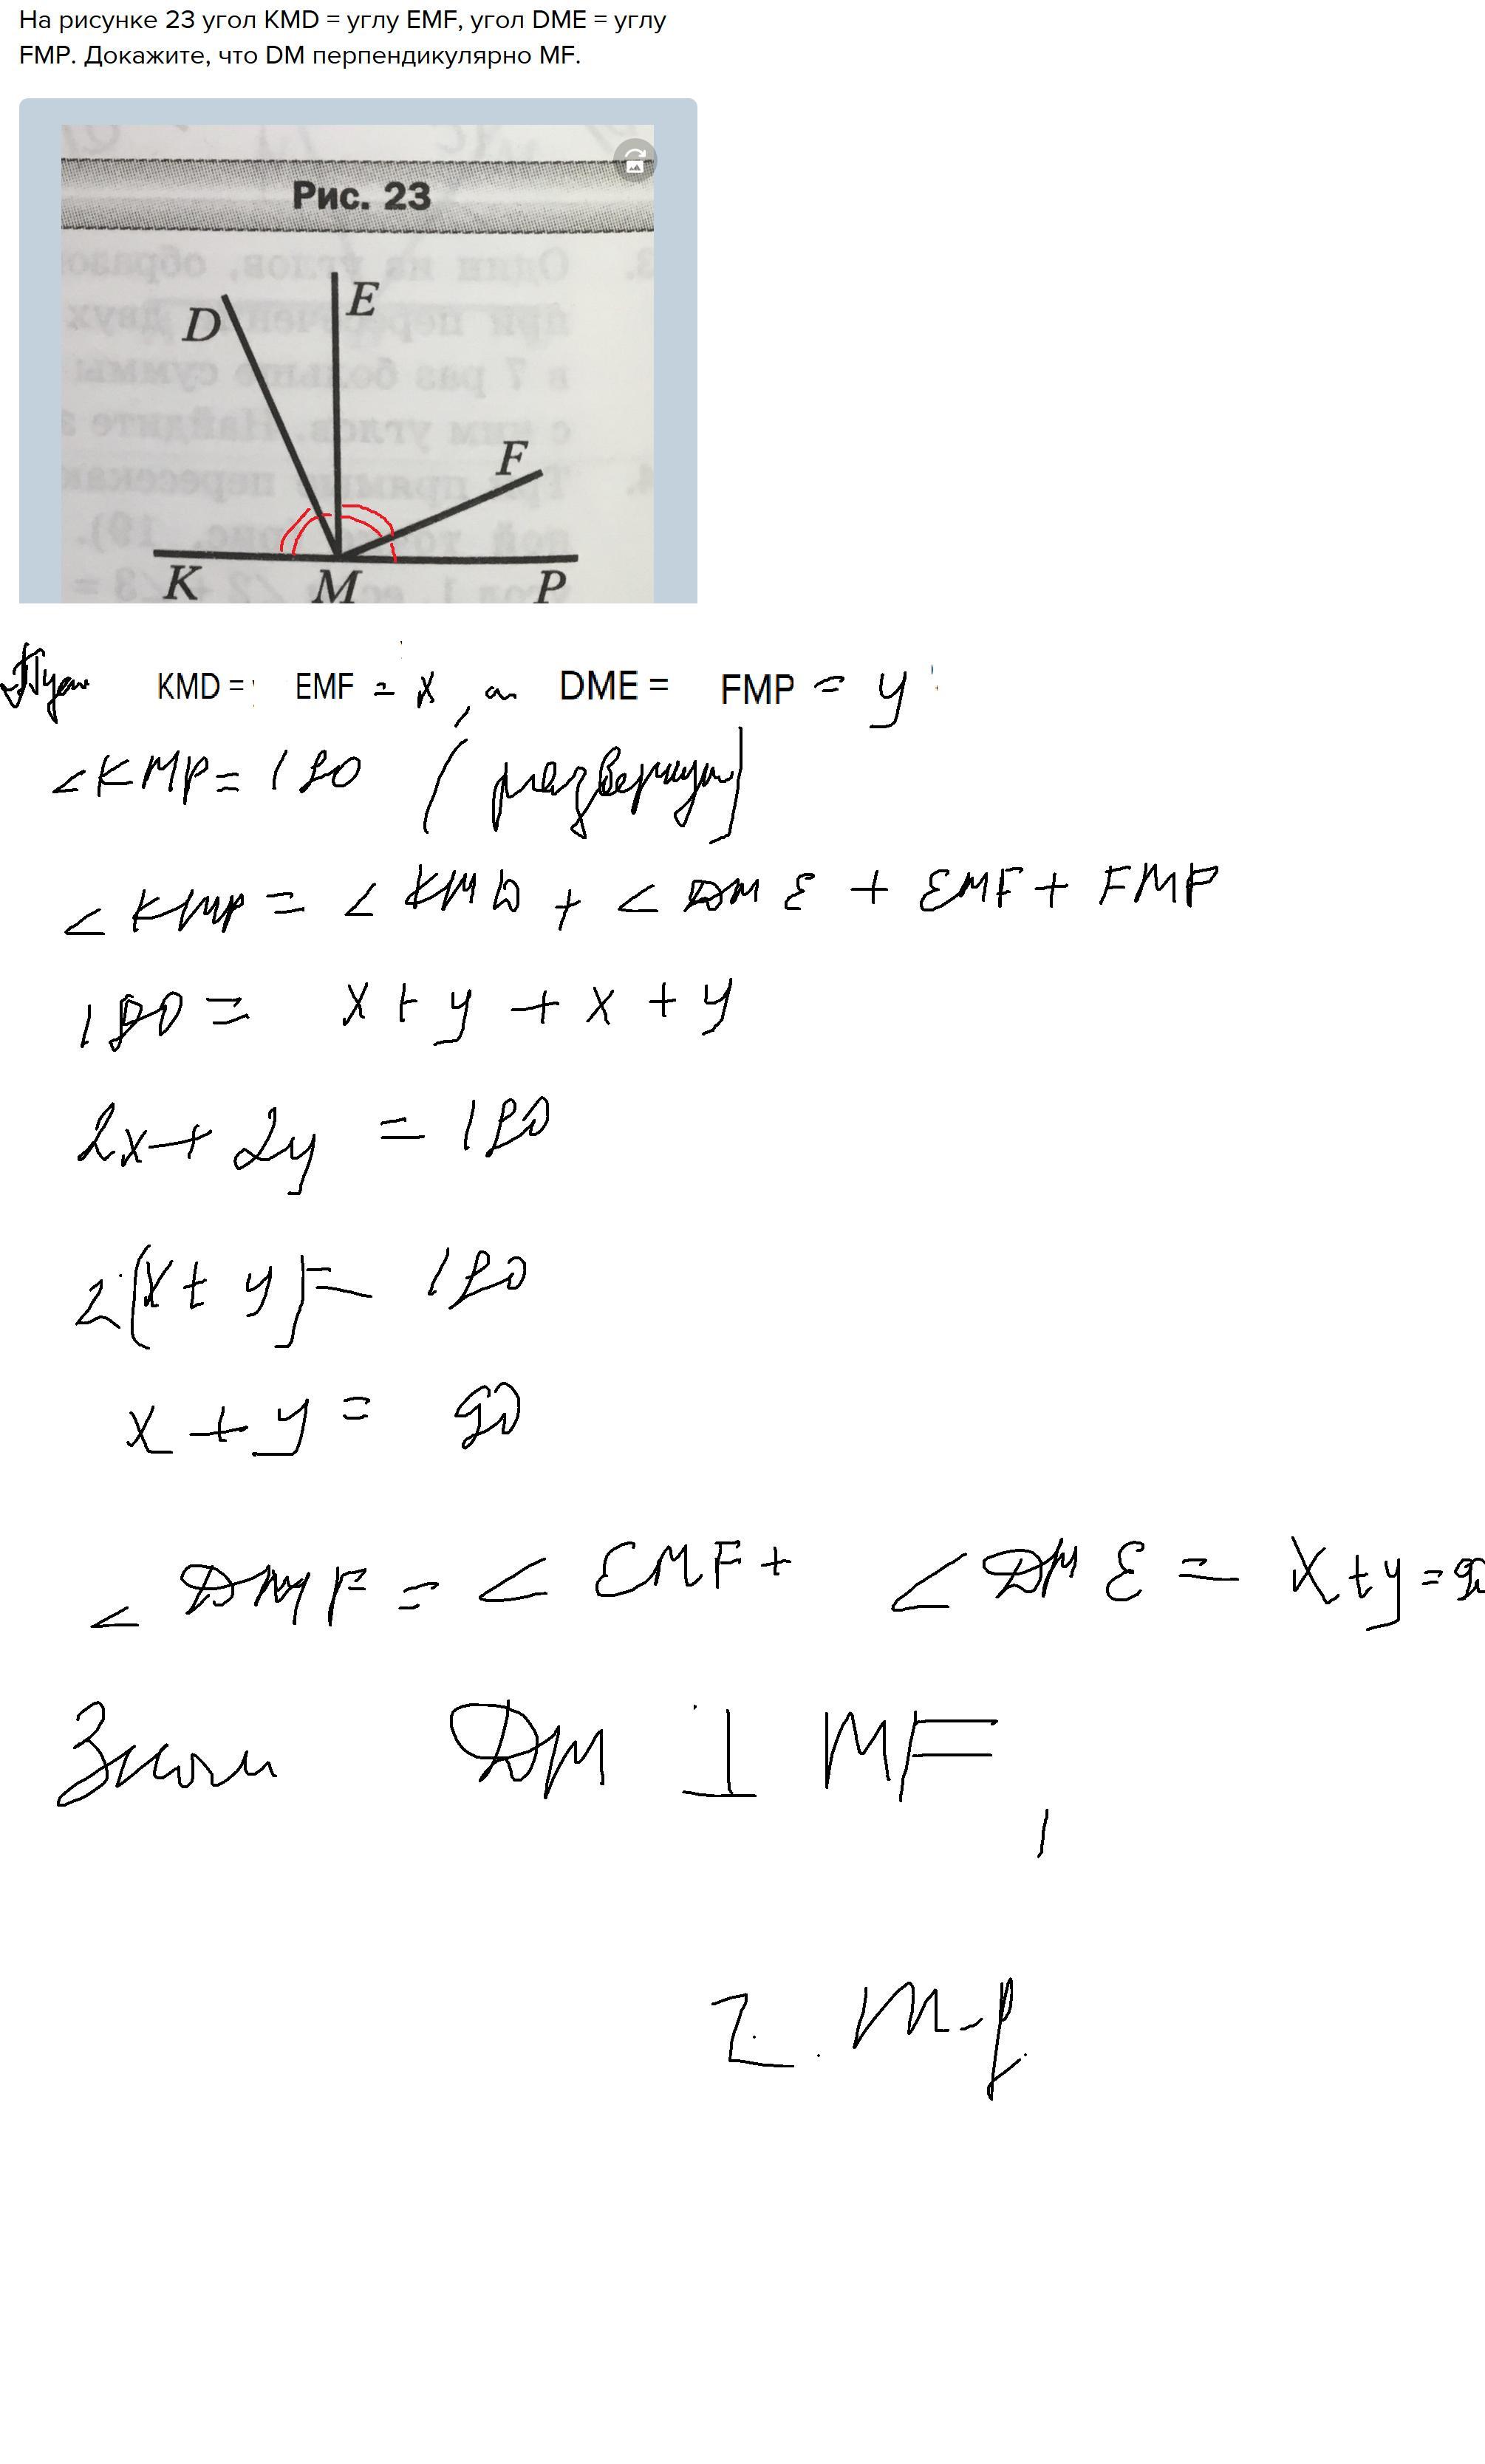 На рисунке 23 угол KMD = углу EMF, угол DME = углу
FMP. Докажите, что DM перпендикулярно MF.
Рис. 23
D
E
F
K
M
P
KMD = EMF = x, а DME = FMP = y
∠KMP = 180 (развернут)
∠KMP = ∠KMD + ∠DME + EMF + FMP
180 = x + y + x + y
2x + 2y = 180
2(x + y) = 180
x + y = 90
∠DMF = ∠EMF + ∠DME = x + y = 90
DM ⊥ MF,